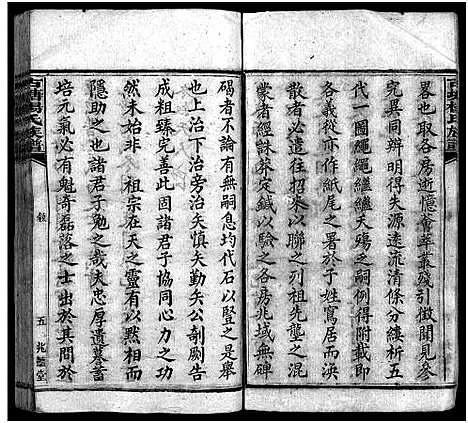 百塘楊氏族譜
畧也取各房逝憶薈萃叢殘引徵聞見參
究同異辨明得失源遠流清條分縷析五
代一圖繩繩繼繼夭殤之嗣例得附載即
各義從亦作紙尾之署於于姓寄居而渙
散者必遣往以聯之列祖先壟之混
蒙者經秝莽定鍼以驗之各房兆域無碑
碣者不論有無嗣息均代石以豎之是舉
也上治下治旁治矣慎矣勤矣公剞劂告
成祖臻完善此固諸君子協同心力之功
然未始非 祖宗在天之靈有以黙黙
隱助之也諸君子勉乎哉夫忠厚遺基書
培元氣必有魁奇磊落之士出於其間於
百塘楊氏族譜
五